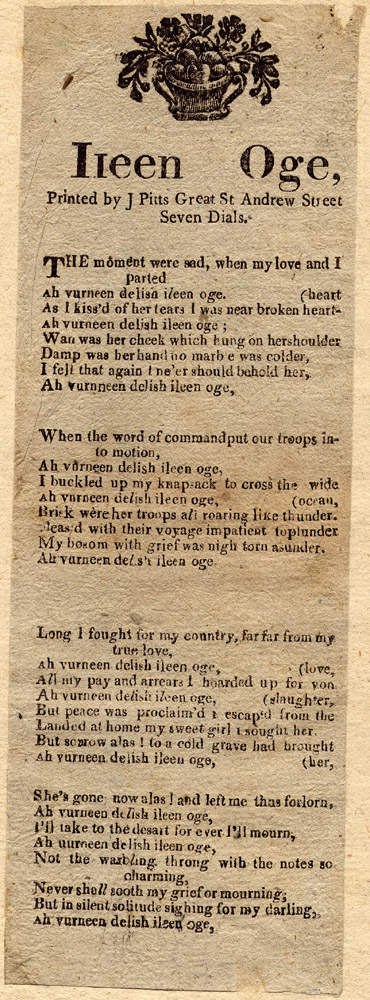 Ileen Oge,
Printed by J Pitts Great St Andrew Street
Seven Dials.
THE moment were sad, when my love and I
parted
Ah vurneen delish ileen oge. (heart
As I kiss'd of her tears I was near broken heart-
Ah vurneen delish ileen oge ;
Wan was her cheek which hung on hershoulder
Damp was her hand no marb e was colder,
I felt that again I ne'er should behold her,
Ah vurnneen delish ileen oge,
When the word of commandput our troops in-
to motion,
Ah vurneen delish ileen oge,
I buckled up my knapsack to cross the wide
Ah vurneen delish ileen oge, (ocean,
Brisk were her troops all roaring like thunder.
leas'd with their voyage impatient toplunder
My bosom with grief was nigh torn asunder.
Ah vurneen delish ileen oge
Long I fought for my country, far far from my
true love,
Ah vurneen delish ileen oge, (love,
All my pay and arrears I hoarded up for you
Ah vurneen delish ileen oge, (slaughter,
But peace was proclaim'd I escap'd from the
Landed at home my sweet girl I sought her.
But sorrow alas ! to a cold grave had brought
Ah vurneen delish ileen oge, (her,
She's gone now alas ! and left me thus forlorn,
Ah vurneen delish ileen oge,
I'll take to the desart for ever I'll mourn,
Ah uurneen delish ileen oge,
Not the warbling throng with the notes so
charming,
Never shall sooth my grief or mourning;
But in silent solitude sighing for my darling,
Ah vurneen delish ileen oge,